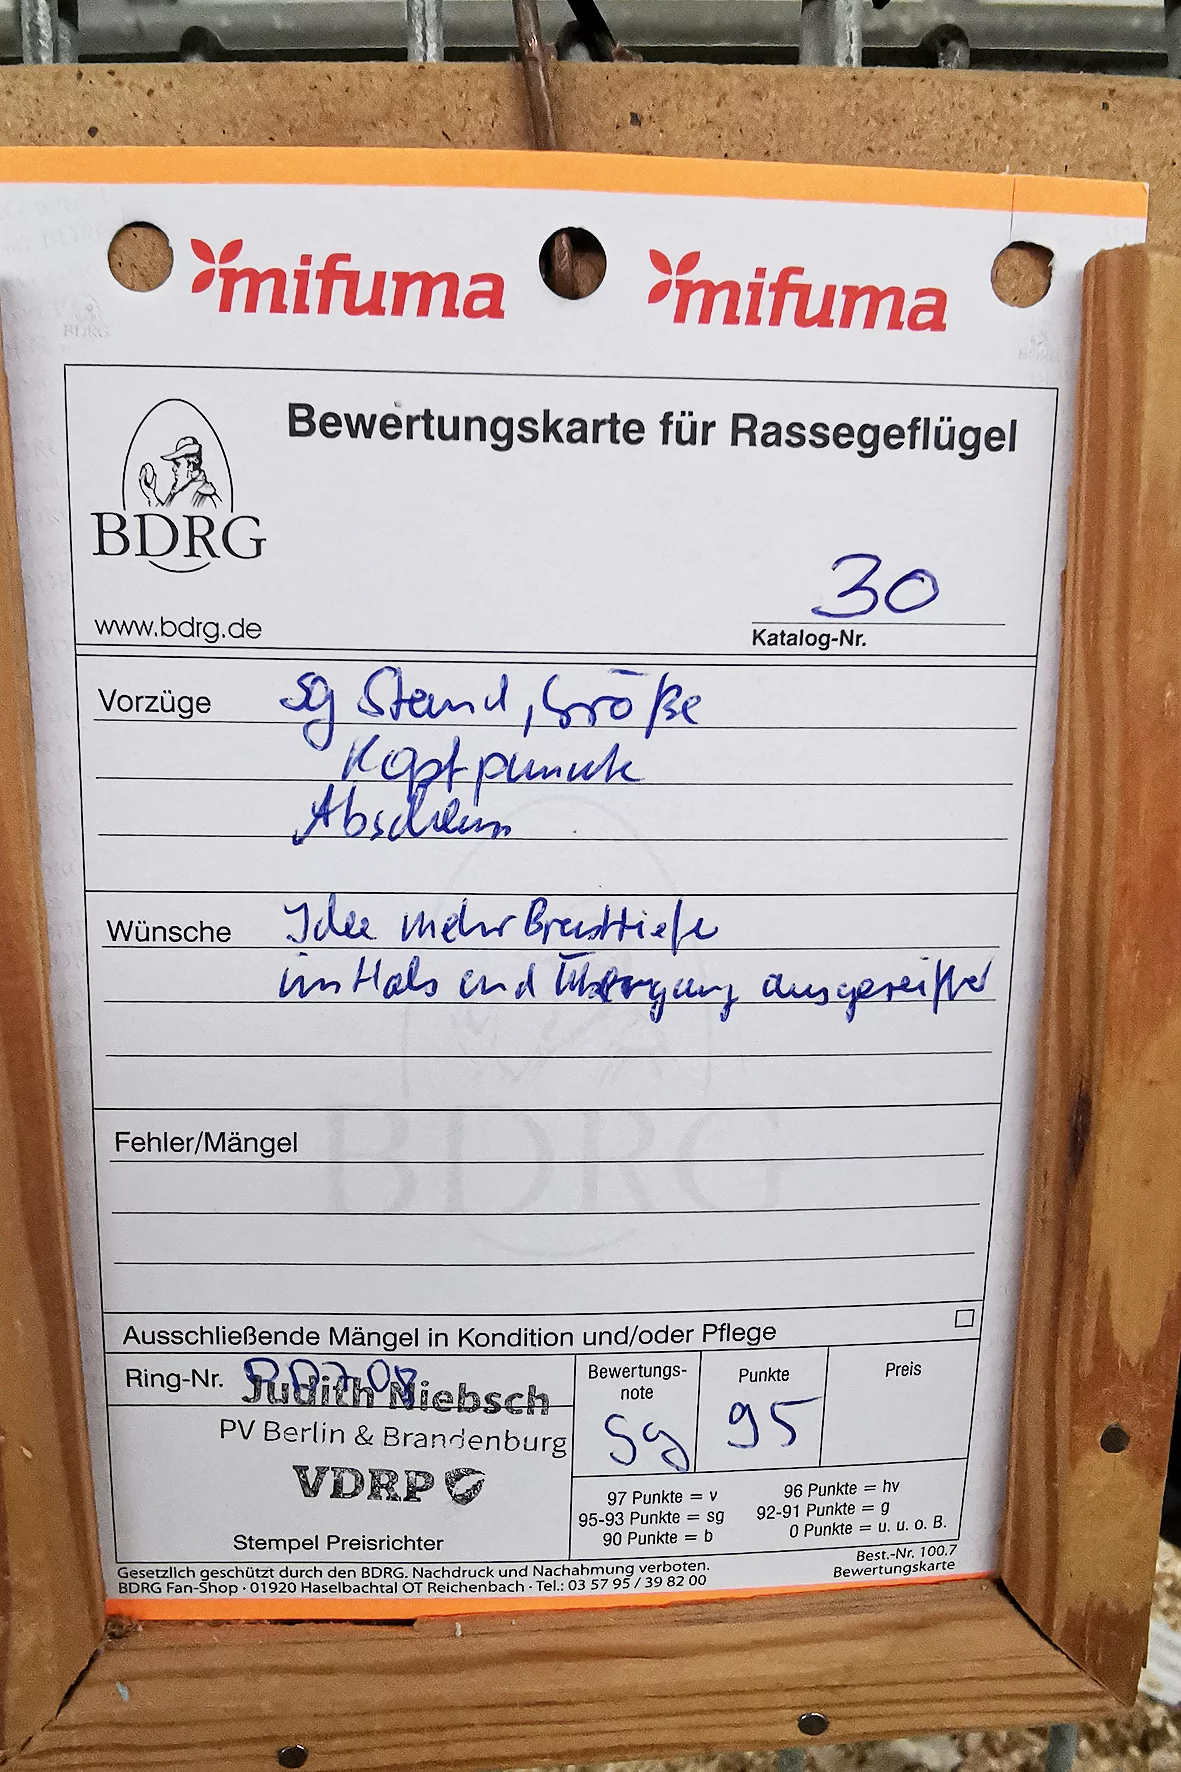 mifuma mifuma
Bewertungskarte für Rassegeflügel
BDRG
www.bdrg.de
30
Katalog-Nr.
Vorzüge sg Stand, Größe
Kopfpunkte
Wünsche Idee mehr Brusttiefe
im Hals und Übergang ausgereifter
Fehler/Mängel
BDRG
Ausschließende Mängel in Kondition und/oder Pflege
Ring-Nr.
Judith Niebsch
PV Berlin & Brandenburg
VDRP
Stempel Preisrichter
Bewertungs-
note
sg
Punkte
95
Preis
97 Punkte = v 96 Punkte = hv
95-93 Punkte = sg 92-91 Punkte = g
90 Punkte = b 0 Punkte = u. u. o. B.
Gesetzlich geschützt durch den BDRG. Nachdruck und Nachahmung verboten.
BDRG Fan-Shop · 01920 Haselbachtal OT Reichenbach · Tel.: 03 57 95 / 39 82 00
Best.-Nr. 100.7
Bewertungskarte